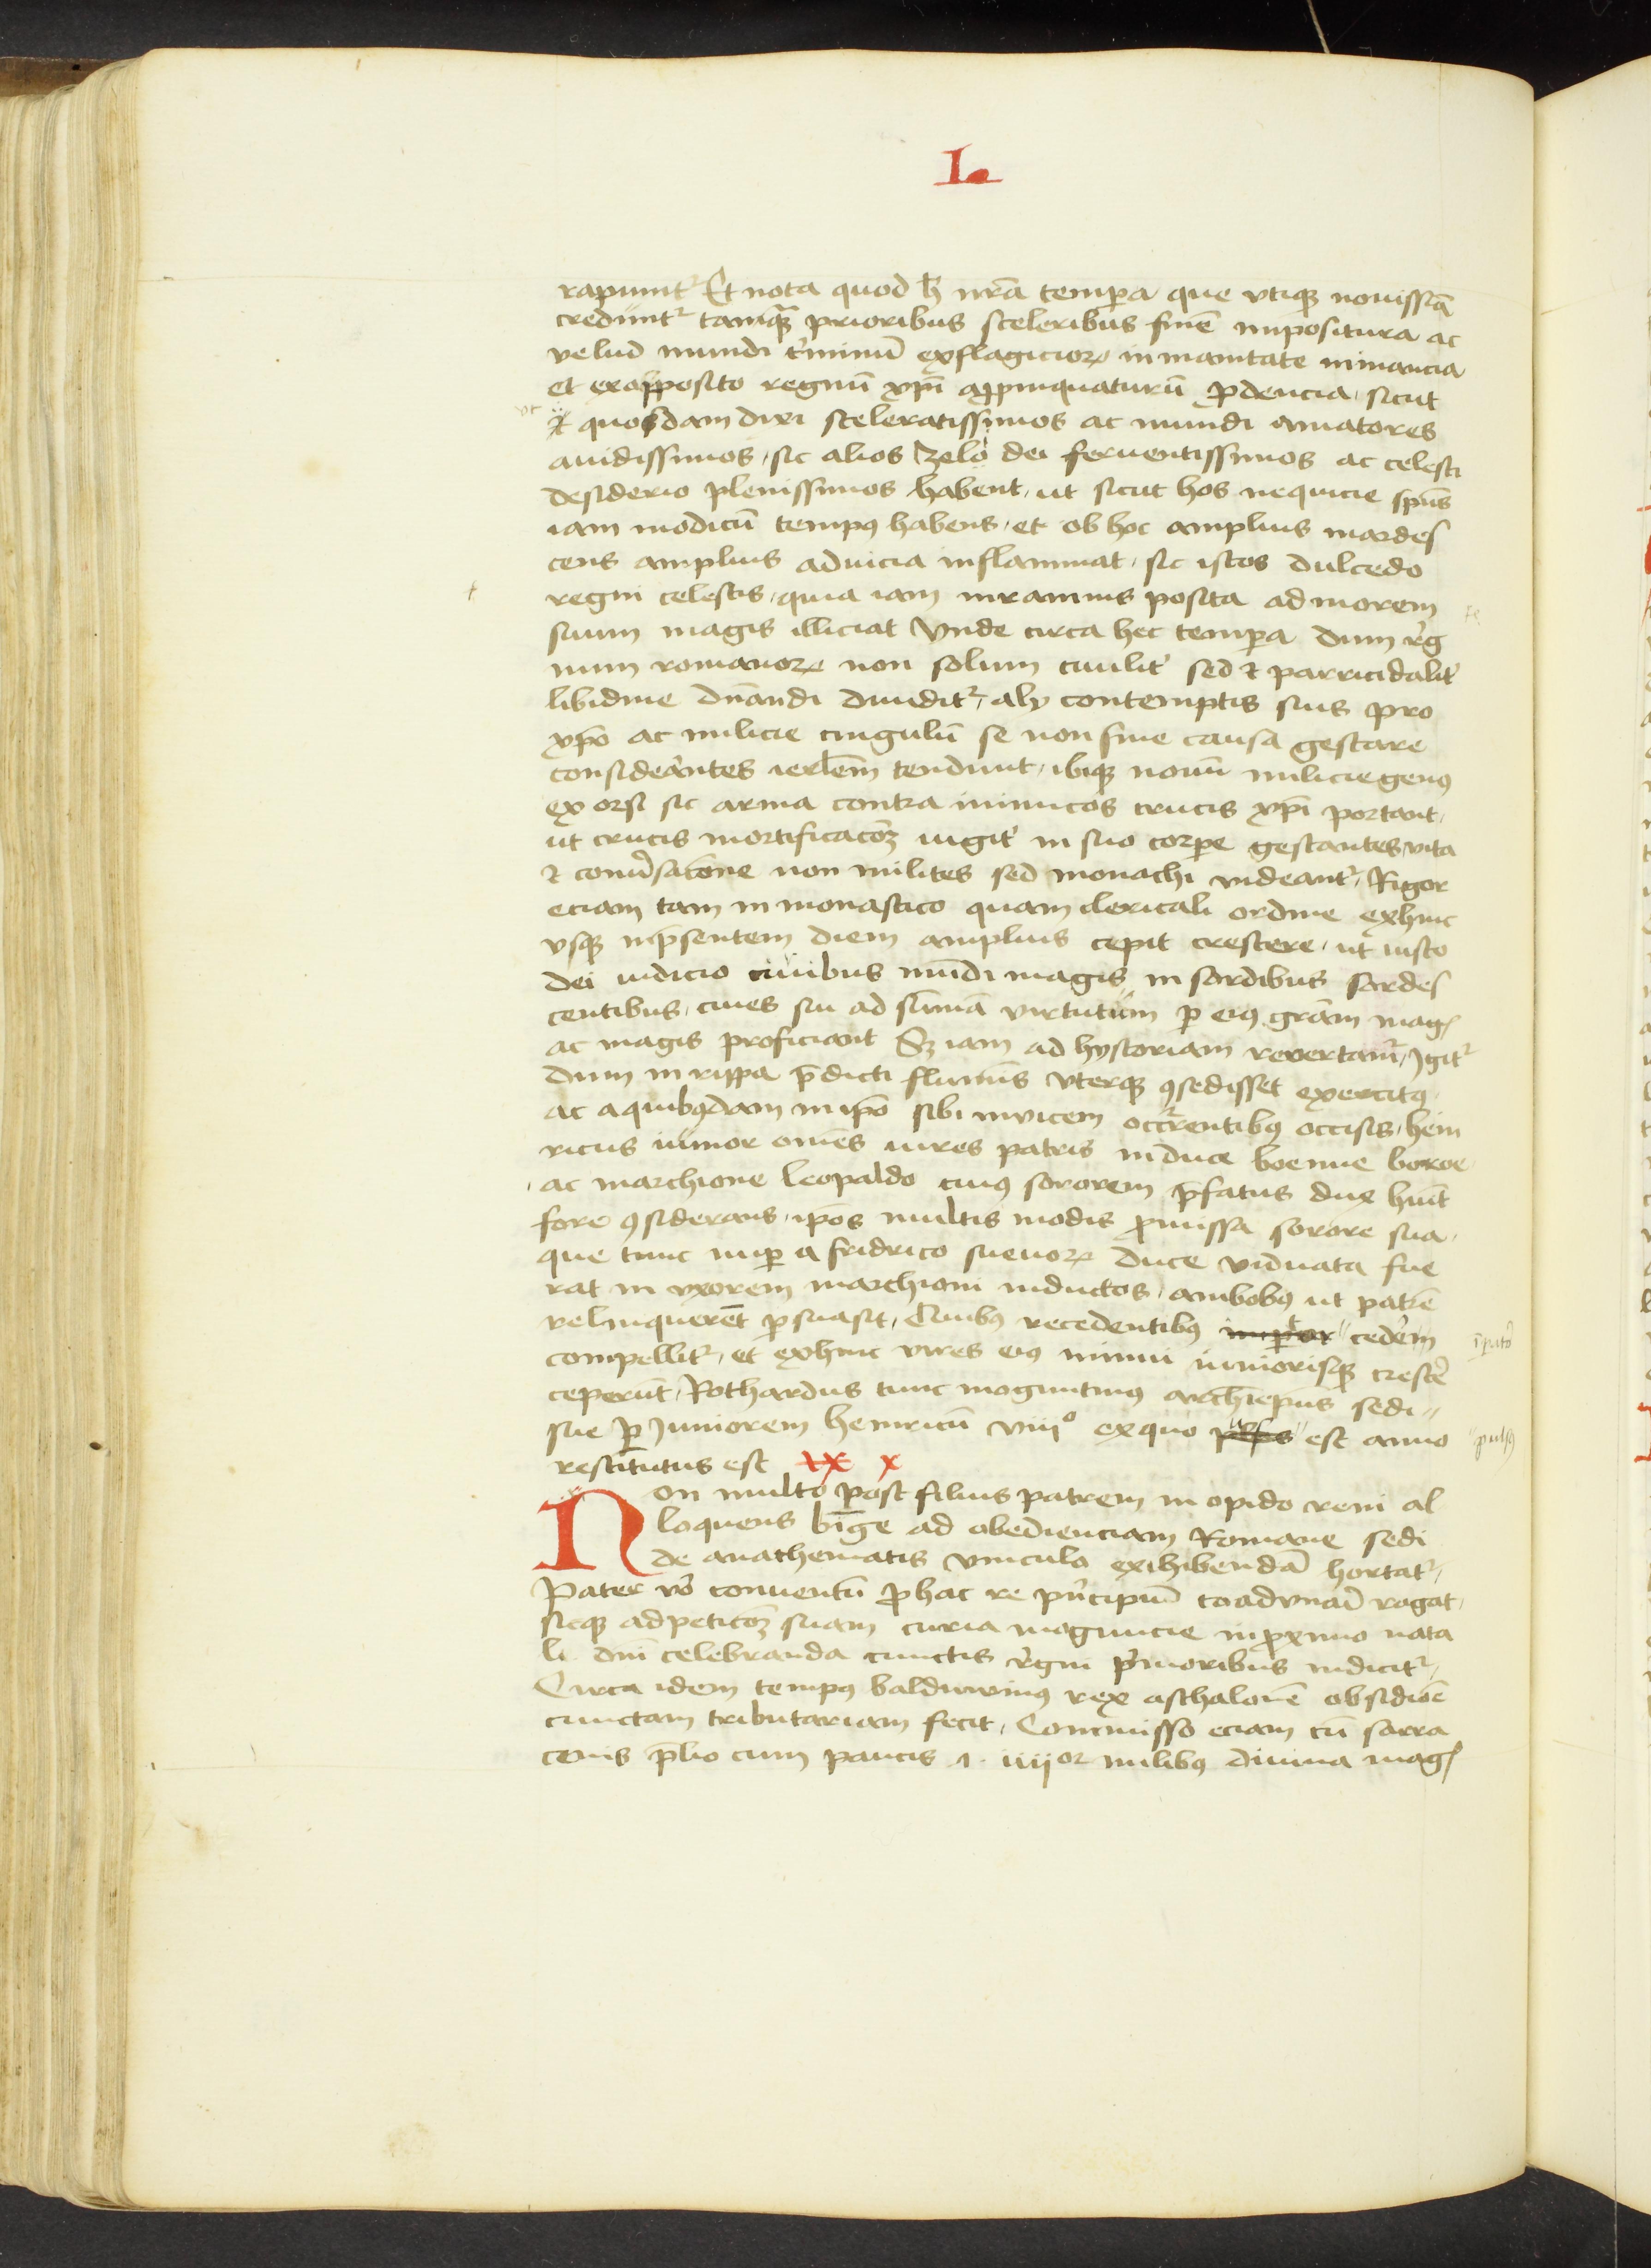 L
rapiunt᷑ Et nota quod h̄ nr̄a tempa que vtiqꝫ nouissīa
credunt᷑ tamqꝫ prioribus sceleribus finē impositura ac
velud mundi t̓minū exflagicioꝝ inmanitate minancia
et exopposito regnū xp̄i appīnquaturū p̄dencia sicut
vt
quosdam dixi sceleratissimos ac mundi amatores
auidissimos, sic alios zelo dei feruentissimos ac celesti
desiderio plenissimos habent, ut sicut hos nequicie sp̄us
iam modicū tempꝰ habens, et ob hoc amplius inardes
cens amplius aduicia inflammat, sic istos dulcedo
regni celestis, quia iam inramnis posita ad morem
suum magis illiciat Vnde circa hec tempa dum r̓g
num romanoꝝ non solum ciuilit̓ sed ⁊ parricidalit̓
libidine dn̄andi diuidit᷑, alij contemptis suis pro
xp̄o ac milicie cingulū se non sine causa gestare
considera̓ntes ierl̄em tendunt, ibiqꝫ nouū miliciegenꝰ
ex orsi sic arma contra inimicos crucis xp̄i portant,
ut crucis mortificacōꝫ iugit̓ in suo corpe gestantes vita
⁊ conu̓sacōne non milites sed monachi videant᷑, Rigor
eciam tam in monastico quam clericali ordine exhinc
vsqꝫ inp̄sentem diem amplius cepit crescere, ut iusto
dei iudicio ciuibus mūdi magis in sordibus sordes
centibus, ciues sui ad sūmā virtutum p eiꝰ grām mag̕
ac magis proficiant Sꝫ iam ad hystoriam revertam᷑, Igit᷑
dum in rippa p̄dicti fluminis vterqꝫ ꝯsedisset exercitꝰ
ac aquibꝰdam in ip̄o sibi invicem occ᷑rentibꝰ occisis, hein
ricus iunior om̄es vires patris induce boemie boroe
ac marchione leopaldo cuiꝰ sororem p̄fatus dux hūit
fore ꝯsiderans, ip̄os multis modis p̄missa sorore sua
que tunc nup a fridrico sueuoꝝ duce viduata fue
rat in vxorem marchioni inductos, ambobꝰ ut patrē
relinquerēt psuasit, Quibꝰ recedentibꝰ imp̄tor cede̓m
īpato᷑
compellit᷑, et exhinc vires eiꝰ minui iuniorisqꝫ cresce̓
ceperūt, Rothardus tunc maguntinꝰ archiepūs sedi
sue p Juniorem heinricū viiij° exquo est anno
pulsꝰ
restitutus est x
Non multo post filius patrem in opido reni al
loquens bn̄ge ad obedienciam Romane sedi
de anathematis vinculo exihibendā hortat᷑,
Pater v̓o conuentū p̄hac re pn̓cipum coadvnari rogat,
sicqꝫ adpeticōꝫ suam curia maguncie inp̄ximo nata
li dn̄i celebranda cunctis r̓gni p̓moribus indicit᷑,
Circa idem tempꝰ baldwinꝰ rex aschalonē obsidiōe
cunctam tributariam fecit, Commisso eciam cū sarra
cenis p̄lio cum paucis ⁊. iiijor milibꝰ diuina mag̕